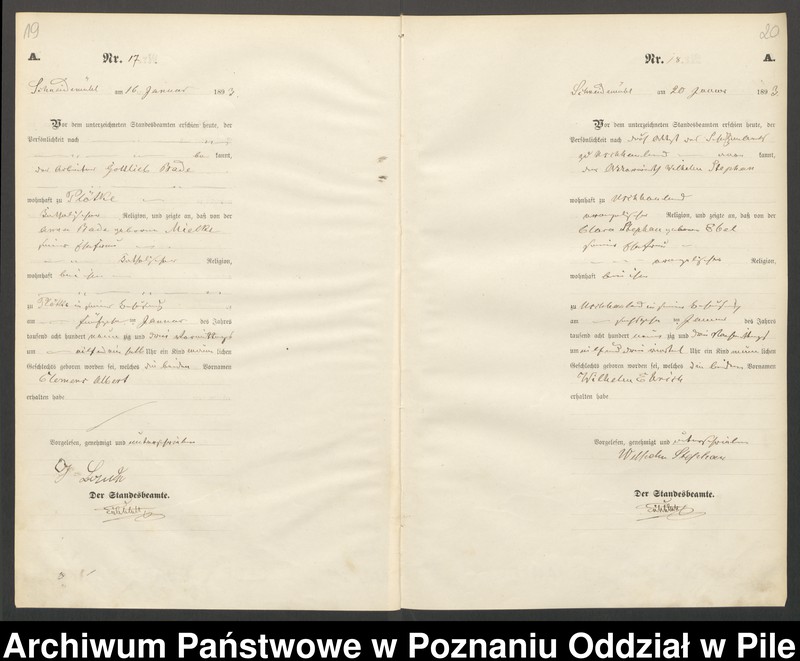 19
A.
Nr. 17
Schneidemühl am 16 Januar 1893.
Vor dem unterzeichneten Standesbeamten erschien heute, der
Persönlichkeit nach
be kannt,
der Arbeiter Gottlieb Bade
wohnhaft zu Plötke
katholischer Religion, und zeigte an, daß von der
Anna Bade geborene Mielke
seiner Ehefrau
katholischer Religion,
wohnhaft bei ihm
zu Plötke in seiner Behausung
am fünfzehn ten Januar des Jahres
tausend acht hundert neun zig und drei Vormittags
um Uhr ein Kind männ lichen
Geschlechts geboren worden sei, welches die beiden Vornamen
Clemens Albert
erhalten habe
Vorgelesen, genehmigt und unterschrieben
Der Standesbeamte.
20
A.
Nr. 18.
Schneidemühl am 20 Januar 1893.
Vor dem unterzeichneten Standesbeamten erschien heute, der
Persönlichkeit nach
zu Uschhauland kannt,
der Wilhelm Stephan
wohnhaft zu Uschhauland
evangelischer Religion, und zeigte an, daß von der
Clara Stephan geborene Ebel
seiner Ehefrau
evangelischer Religion,
wohnhaft bei ihm
zu Uschhauland in seiner Behausung
am ten Januar des Jahres
tausend acht hundert neun zig und drei
um Uhr ein Kind männ lichen
Geschlechts geboren worden sei, welches die beiden Vornamen
Wilhelm Erich
erhalten habe
Vorgelesen, genehmigt und unterschrieben
Wilhelm Stephan
Der Standesbeamte.
Archiwum Państwowe w Poznaniu Oddział w Pile